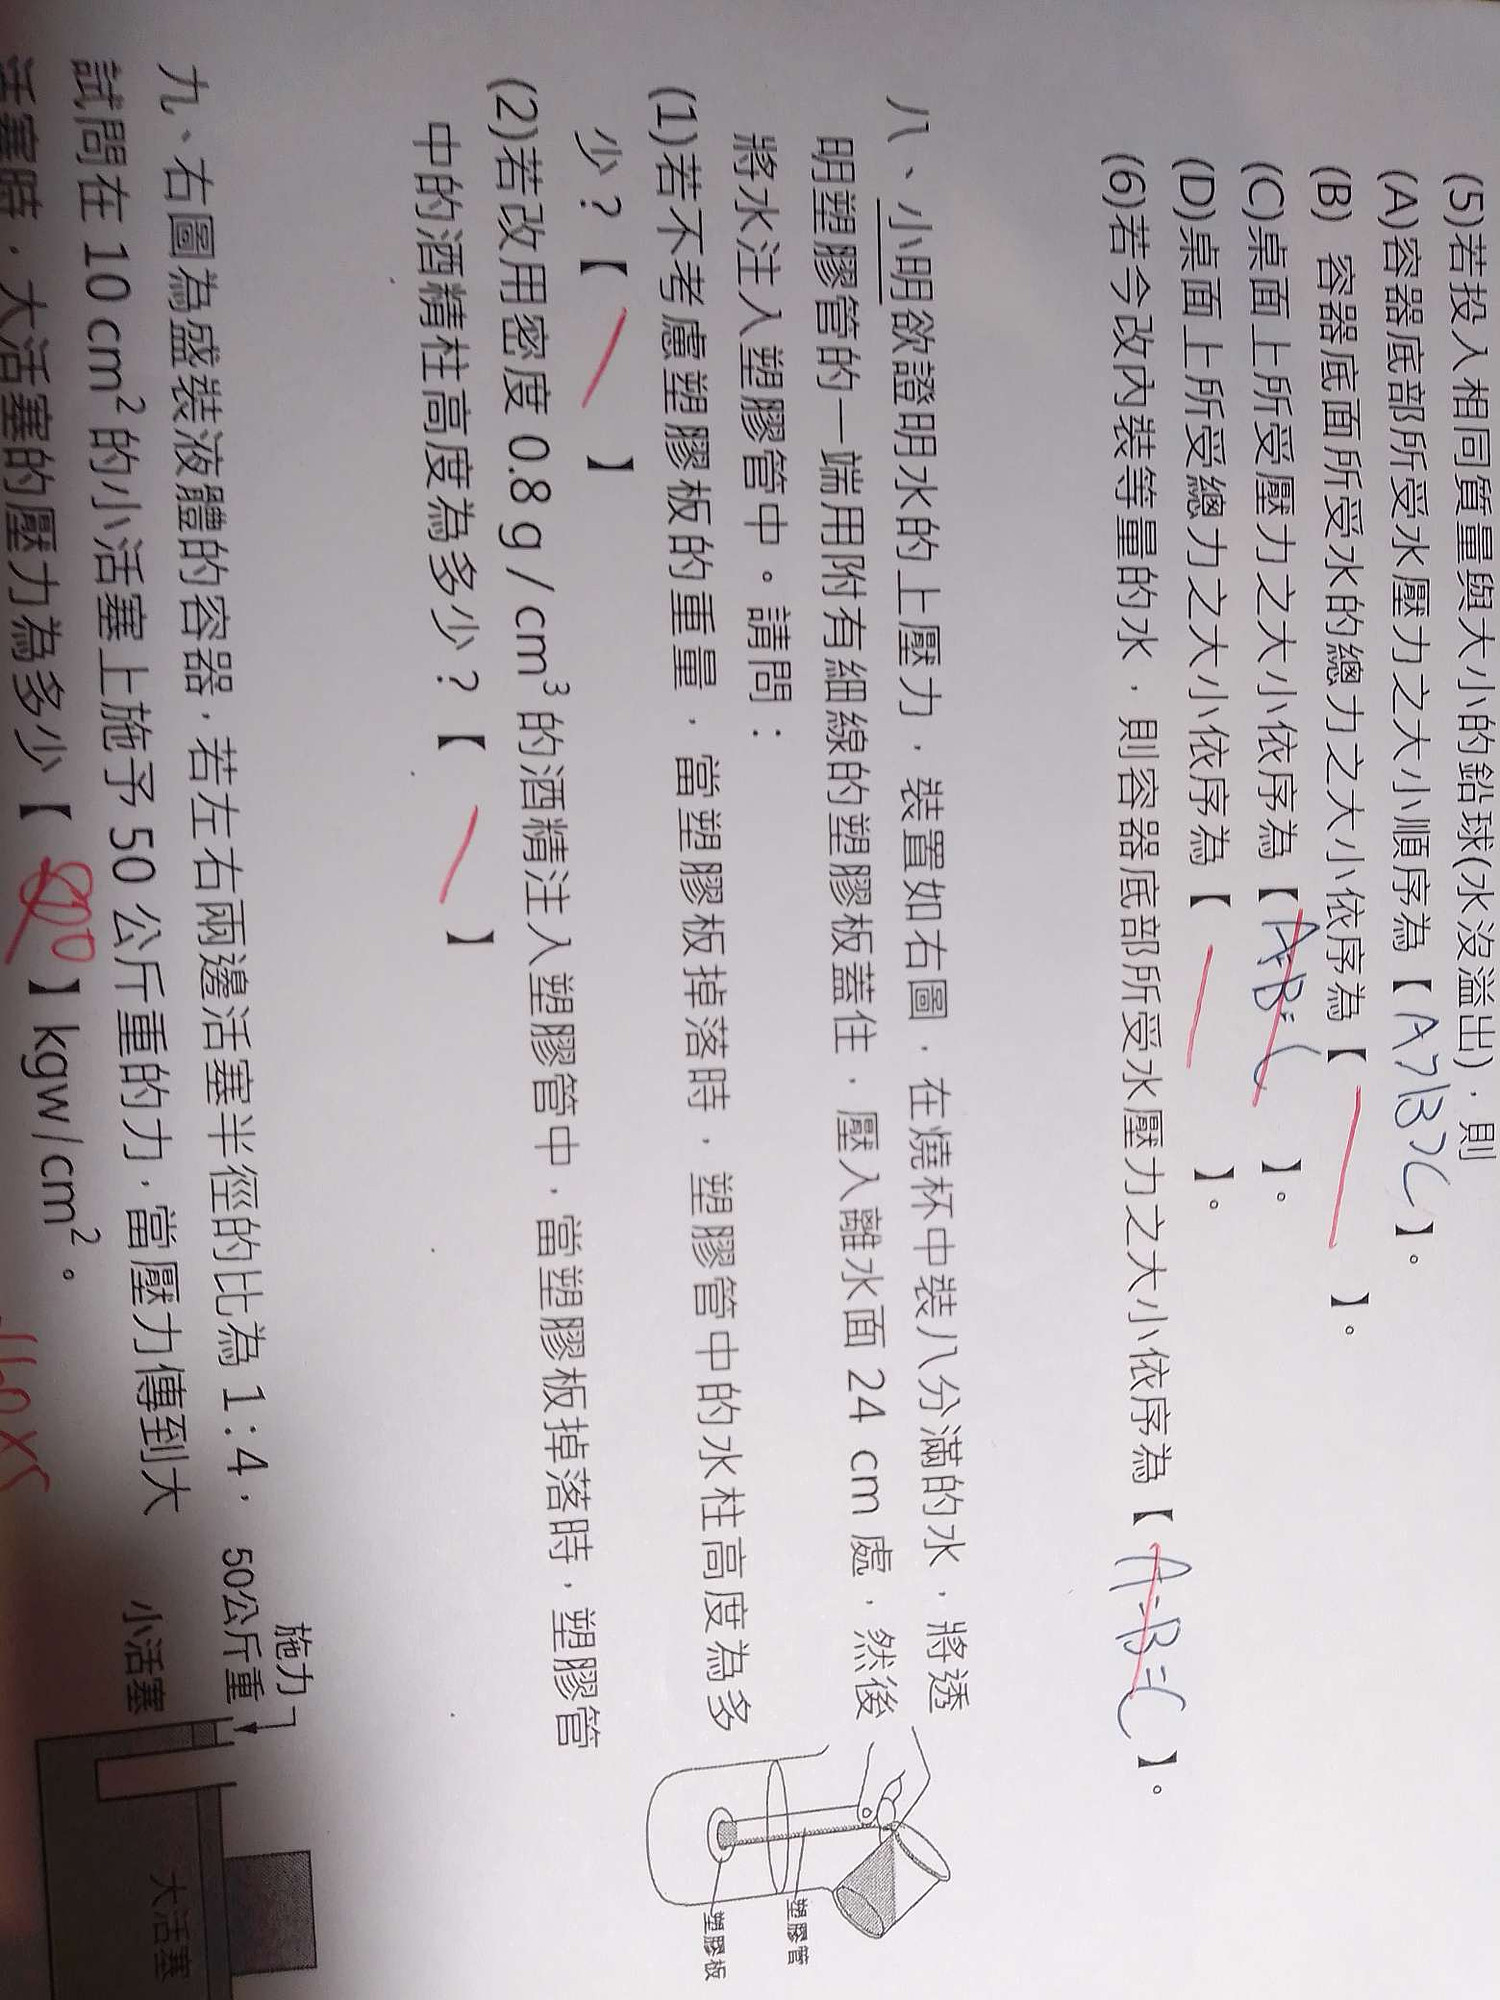 (5)若投入相同質量與大小的鉛球(水沒溢出)，則
(A)容器底部所受水壓力之大小順序為【A>B>C】。
(B) 容器底面所受水的總力之大小依序為【 】。
(C)桌面上所受壓力之大小依序為【A=B=C】。
(D)桌面上所受總力之大小依序為【 】。
(6)若今改內裝等量的水，則容器底部所受水壓力之大小依序為【A=B=C】。
八、小明欲證明水的上壓力，裝置如右圖，在燒杯中裝八分滿的水，將透
明塑膠管的一端用附有細線的塑膠板蓋住，壓入離水面 24 cm 處，然後
將水注入塑膠管中。請問：
(1)若不考慮塑膠板的重量，當塑膠板掉落時，塑膠管中的水柱高度為多
少？【 】
(2)若改用密度 0.8 g / cm³ 的酒精注入塑膠管中，當塑膠板掉落時，塑膠管
中的酒精柱高度為多少？【 】
塑膠管
塑膠板
九、右圖為盛裝液體的容器，若左右兩邊活塞半徑的比為 1：4，
試問在 10 cm² 的小活塞上施予 50 公斤重的力，當壓力傳到大
活塞時，大活塞的壓力為多少【 】kgw/cm²。
施力
50公斤重
小活塞
大活塞